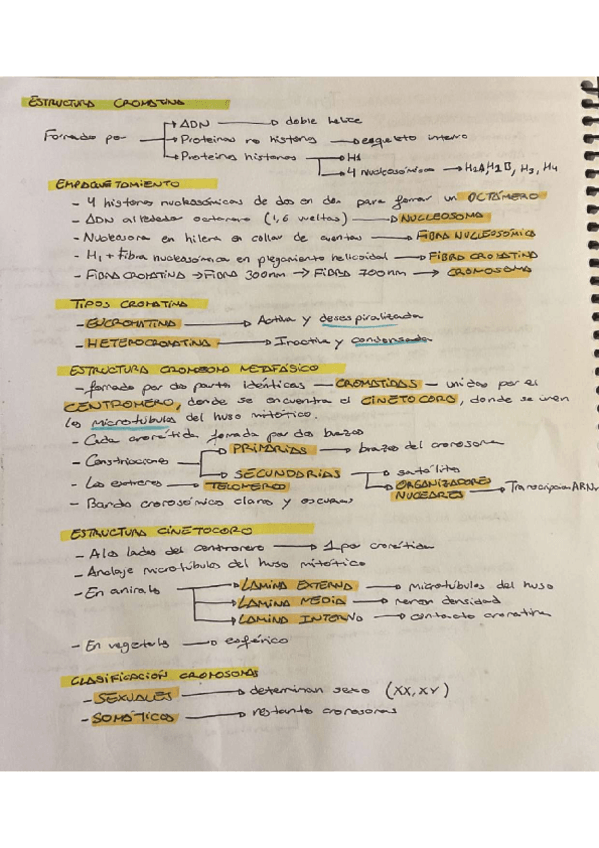 ESTRUCTURA CROMATINA
→ ADN → doble hélice
Formada por → Proteínas no histonas → esqueleto interno
→ Proteínas histonas → H1
→ 4 nucleosómicas → H2A, H2B, H3, H4
EMPAQUETAMIENTO
- 4 histonas nucleosómicas de dos en dos para formar un OCTÁMERO
- ADN alrededor octámero (1,6 vueltas) → NUCLEOSOMA
- Nucleosoma en hilera en collar de cuentas → FIBRA NUCLEOSÓMICA
- H1 + Fibra nucleosómica en plegamiento helicoidal → FIBRA CROMATINA
- FIBRA CROMATINA → FIBRA 300nm → FIBRA 700nm → CROMOSOMA
TIPOS CROMATINA
- EUCROMATINA → Activa y desespiralizada
- HETEROCROMATINA → Inactiva y condensada
ESTRUCTURA CROMOSOMA METAFÁSICO
- formado por dos partes idénticas — CROMATIDAS — unidas por el
CENTROMERO, donde se encuentra el CINETOCORO, donde se unen
los microtúbulos del huso mitótico.
- Cada cromátida formada por dos brazos
- Constricciones → PRIMARIAS → brazos del cromosoma
→ SECUNDARIAS → satélites
- Los extremos → TELOMERO → ORGANIZADORES NUCLEARES → Transcripción ARNr
- Bandas cromosómicas claras y oscuras
ESTRUCTURA CINETOCORO
- A los lados del centromero → 1 por cromátida
- Anclaje microtúbulos del huso mitótico
- En animales → LAMINA EXTERNA → microtúbulos del huso
→ LAMINA MEDIA → menor densidad
→ LAMINA INTERNA → contacto cromatina
- En vegetales → esférico
CLASIFICACIÓN CROMOSOMAS
- SEXUALES → determinan sexo (XX, XY)
- SOMÁTICOS → restante cromosomas